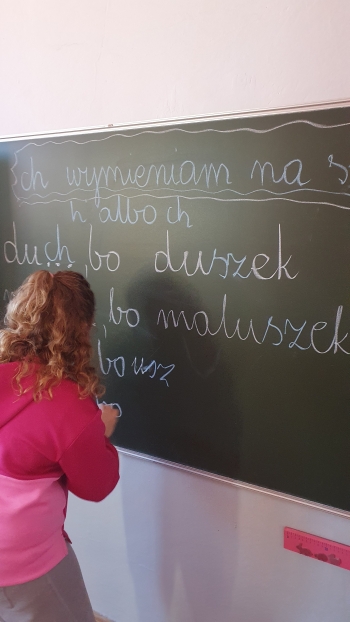 ch wymieniam na s
h albo ch
duch, bo duszek
, bo maluszek
bo usz
bo